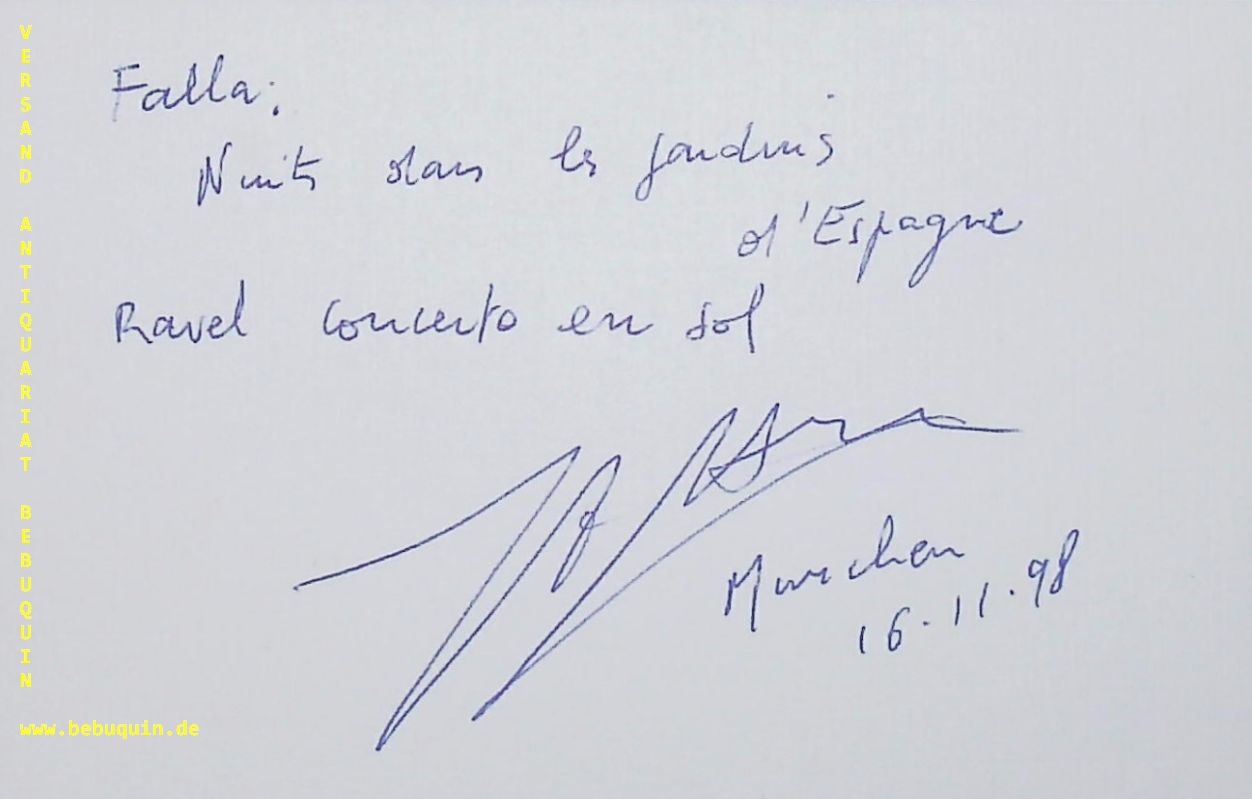 Falla:
Nuits dans les jardins
d'Espagne
Ravel Concerto en sol
München
16.11.98
VERSAND ANTIQUARIAT BEBUQUIN
www.bebuquin.de